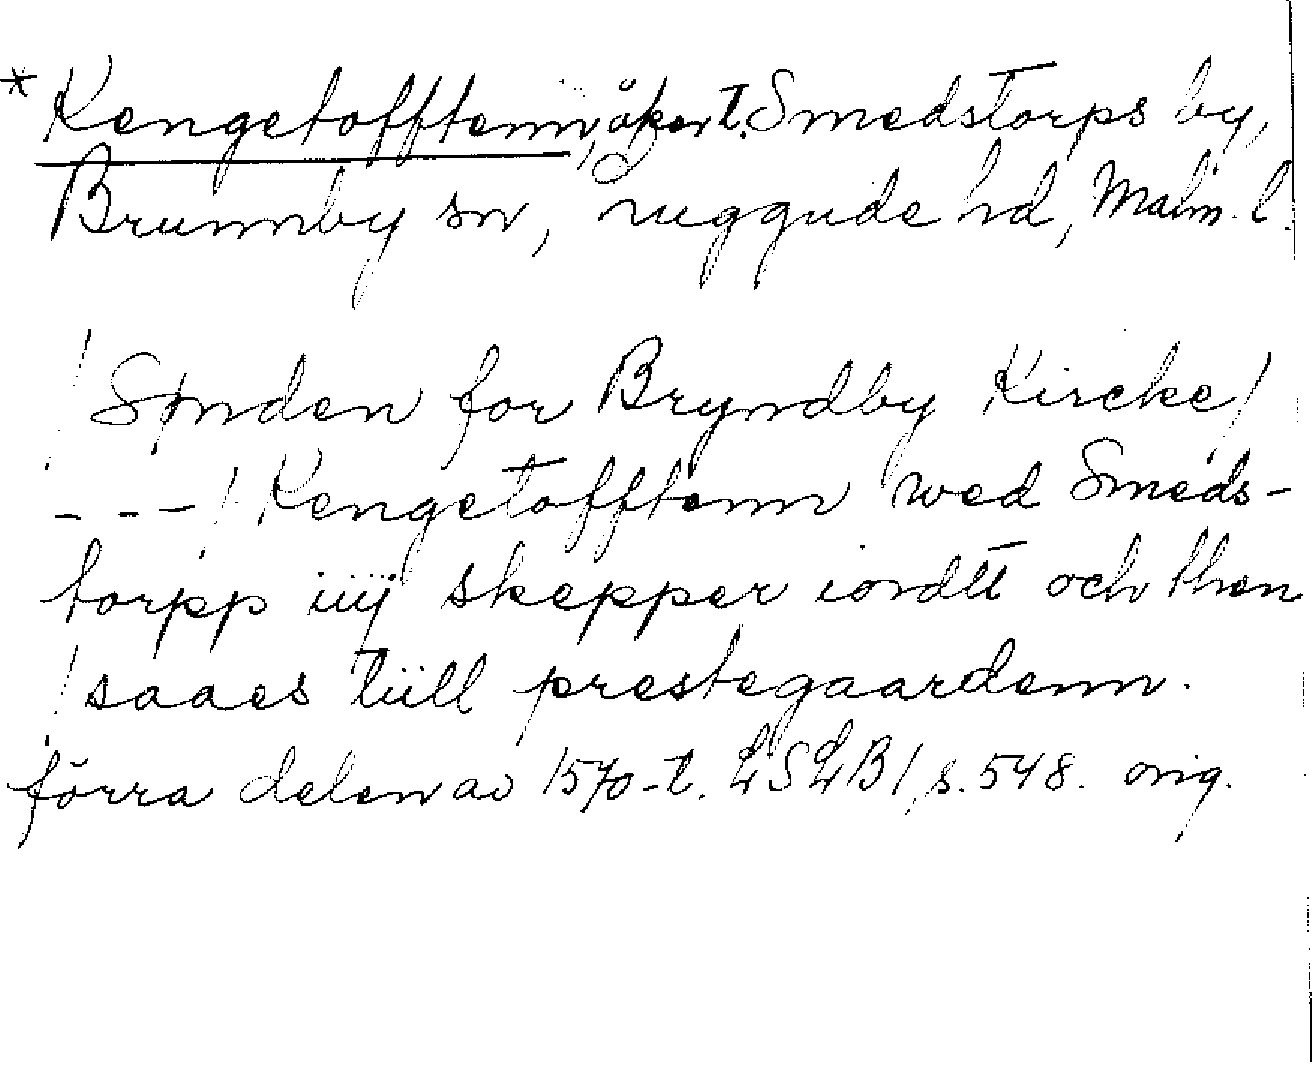 * Kengetofftenn, åker t. Smedstorps by,
Brunnby sn, Luggude hd, Malm. l.
/Sønden for Bryndby Kircke/
---/Kengetofftenn wed Smeds-
torpp iiij skepper iordtt och then
/saaes tüll prestegaardenn.
förra delen av 1570-t. LSLB 1, s. 548. orig.